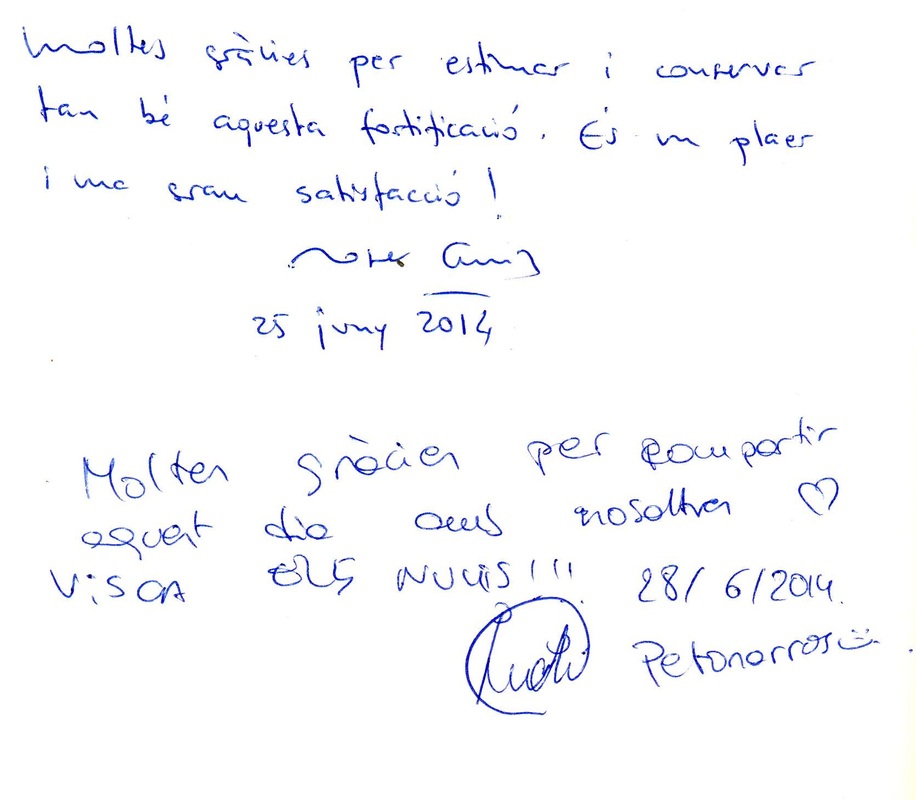 Moltes gràcies per estimar i conservar
tan bé aquesta fortificació. És un plaer
i una gran satisfacció!
25 juny 2014
Moltes gràcies per compartir
aquest dia amb nosaltres ♡
ViSCA ELS NUVIS!!! 28/6/2014.
Petonarros